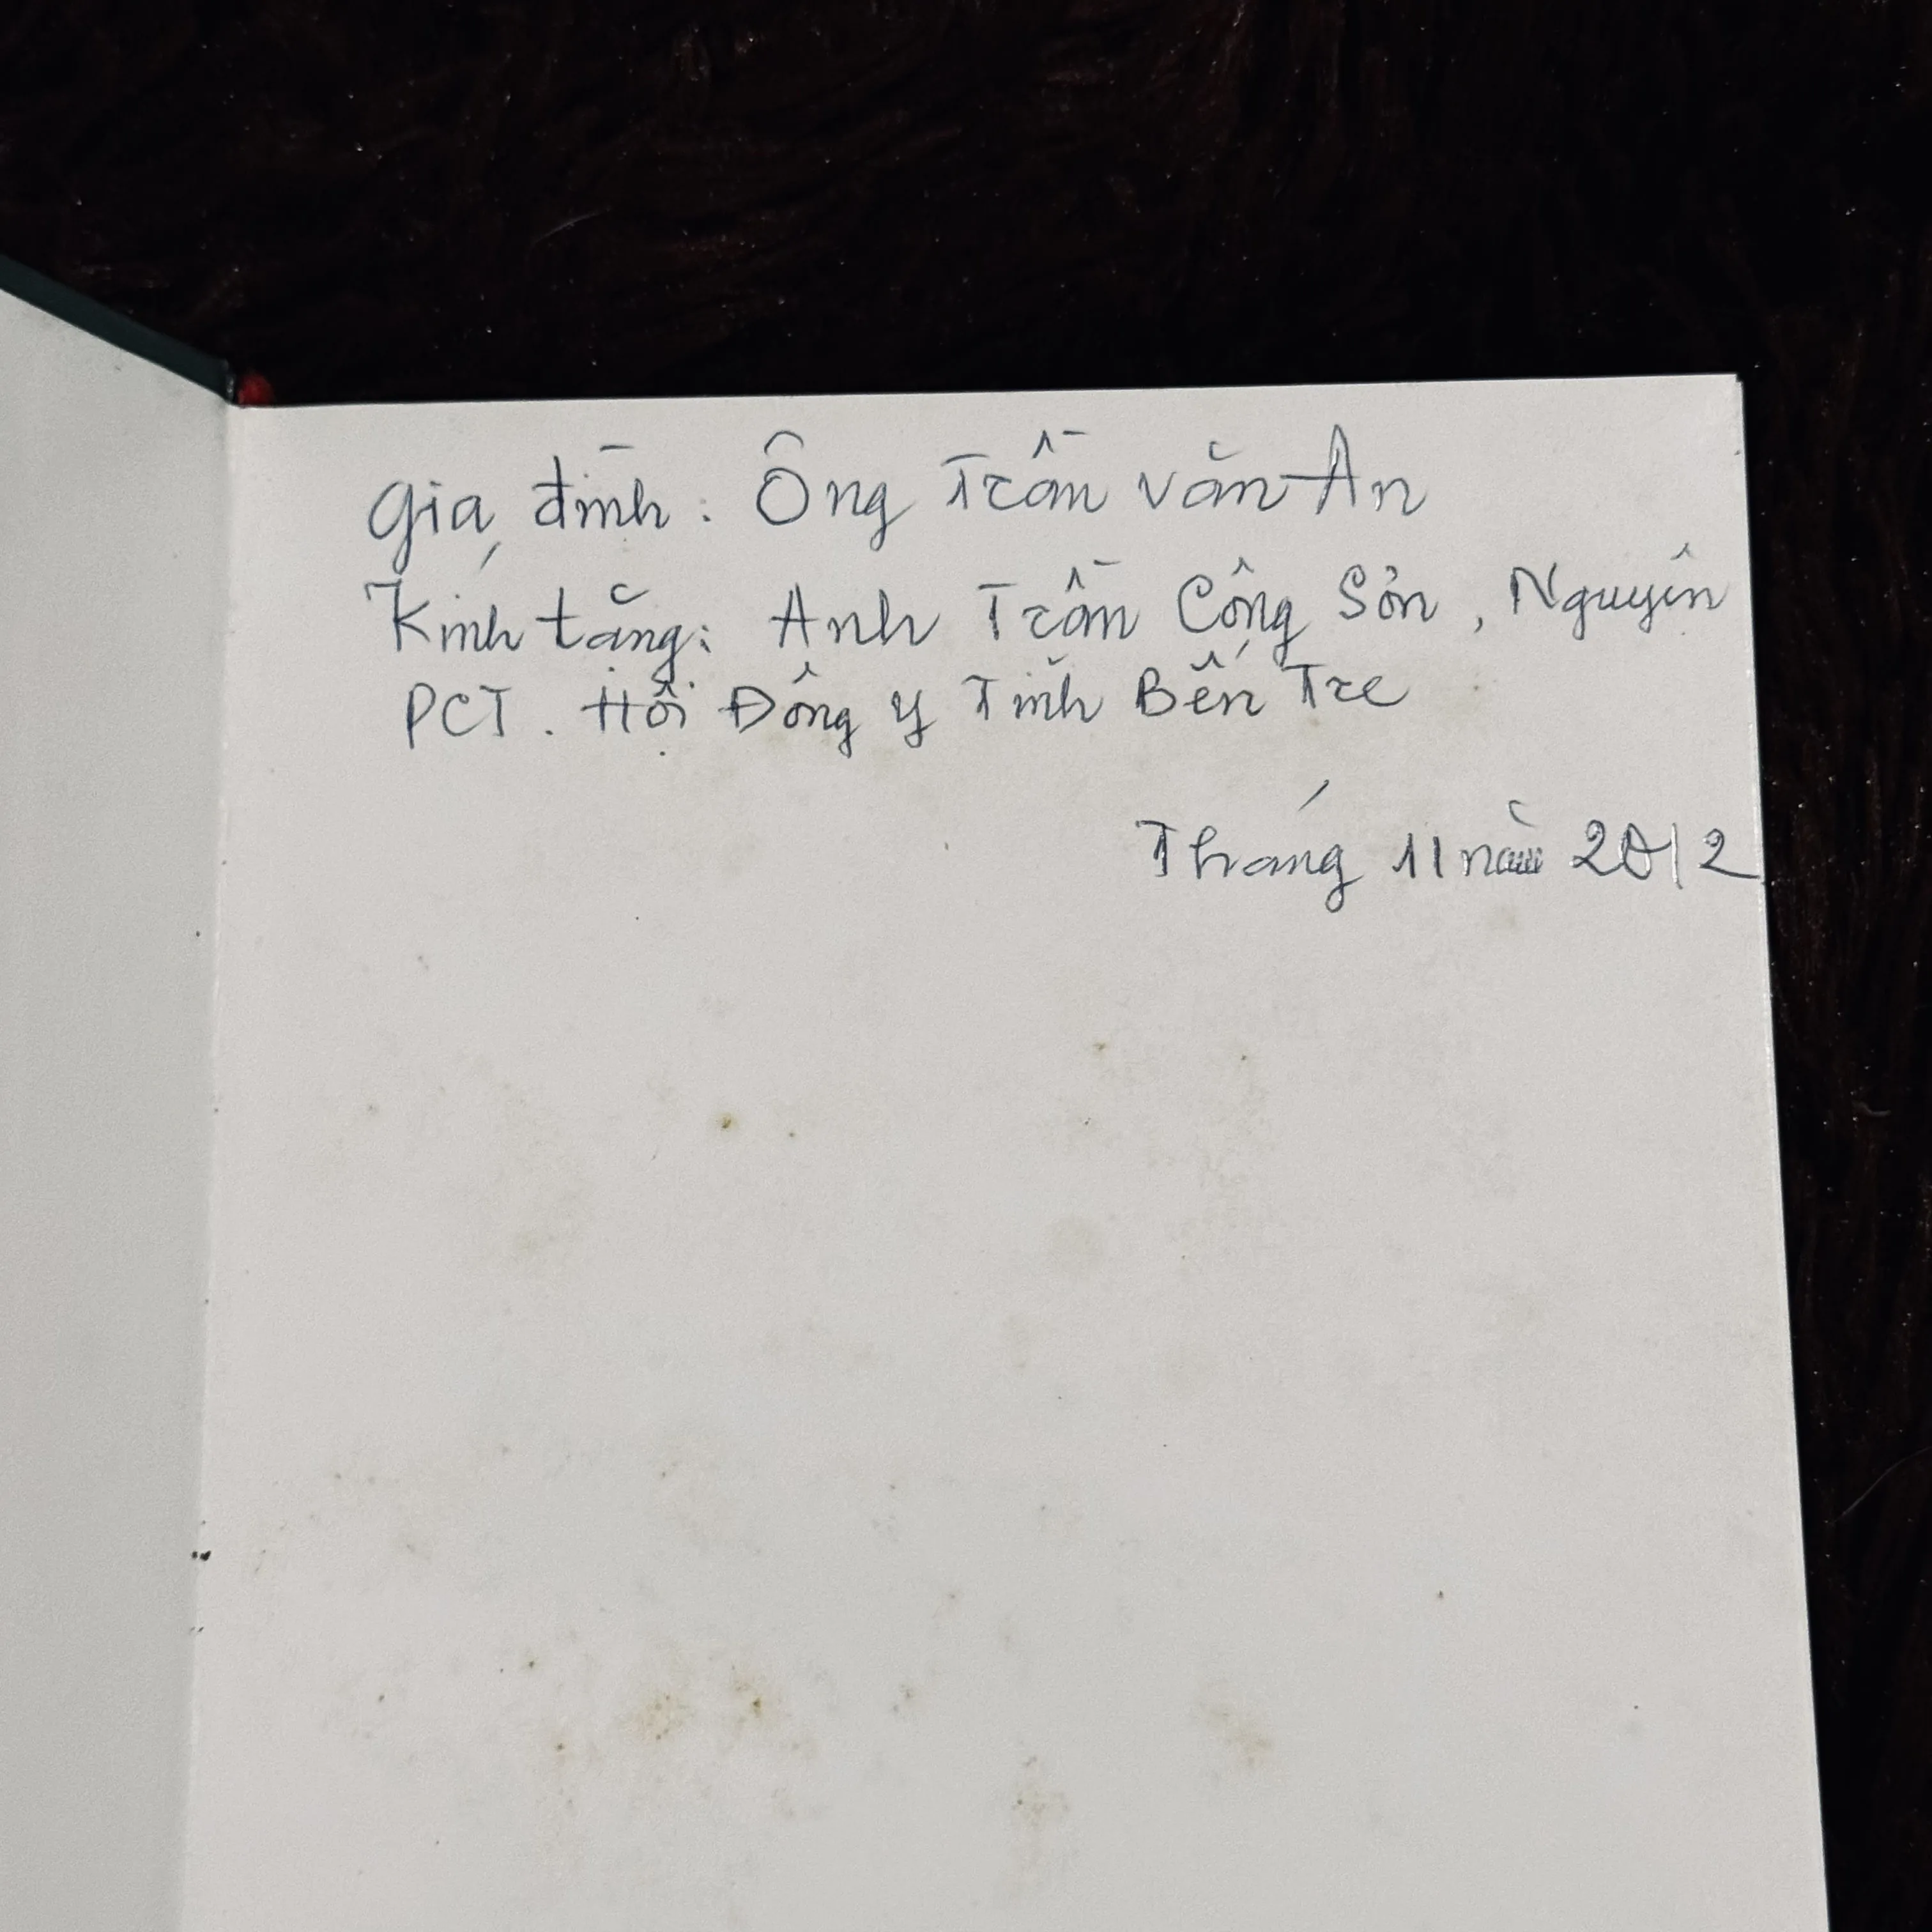 Gia đình: Ông Trần Văn An
Kính tặng: Anh Trần Công Sơn, Nguyên
PCT. Hội Đông y Tỉnh Bến Tre
Tháng 11 năm 2012